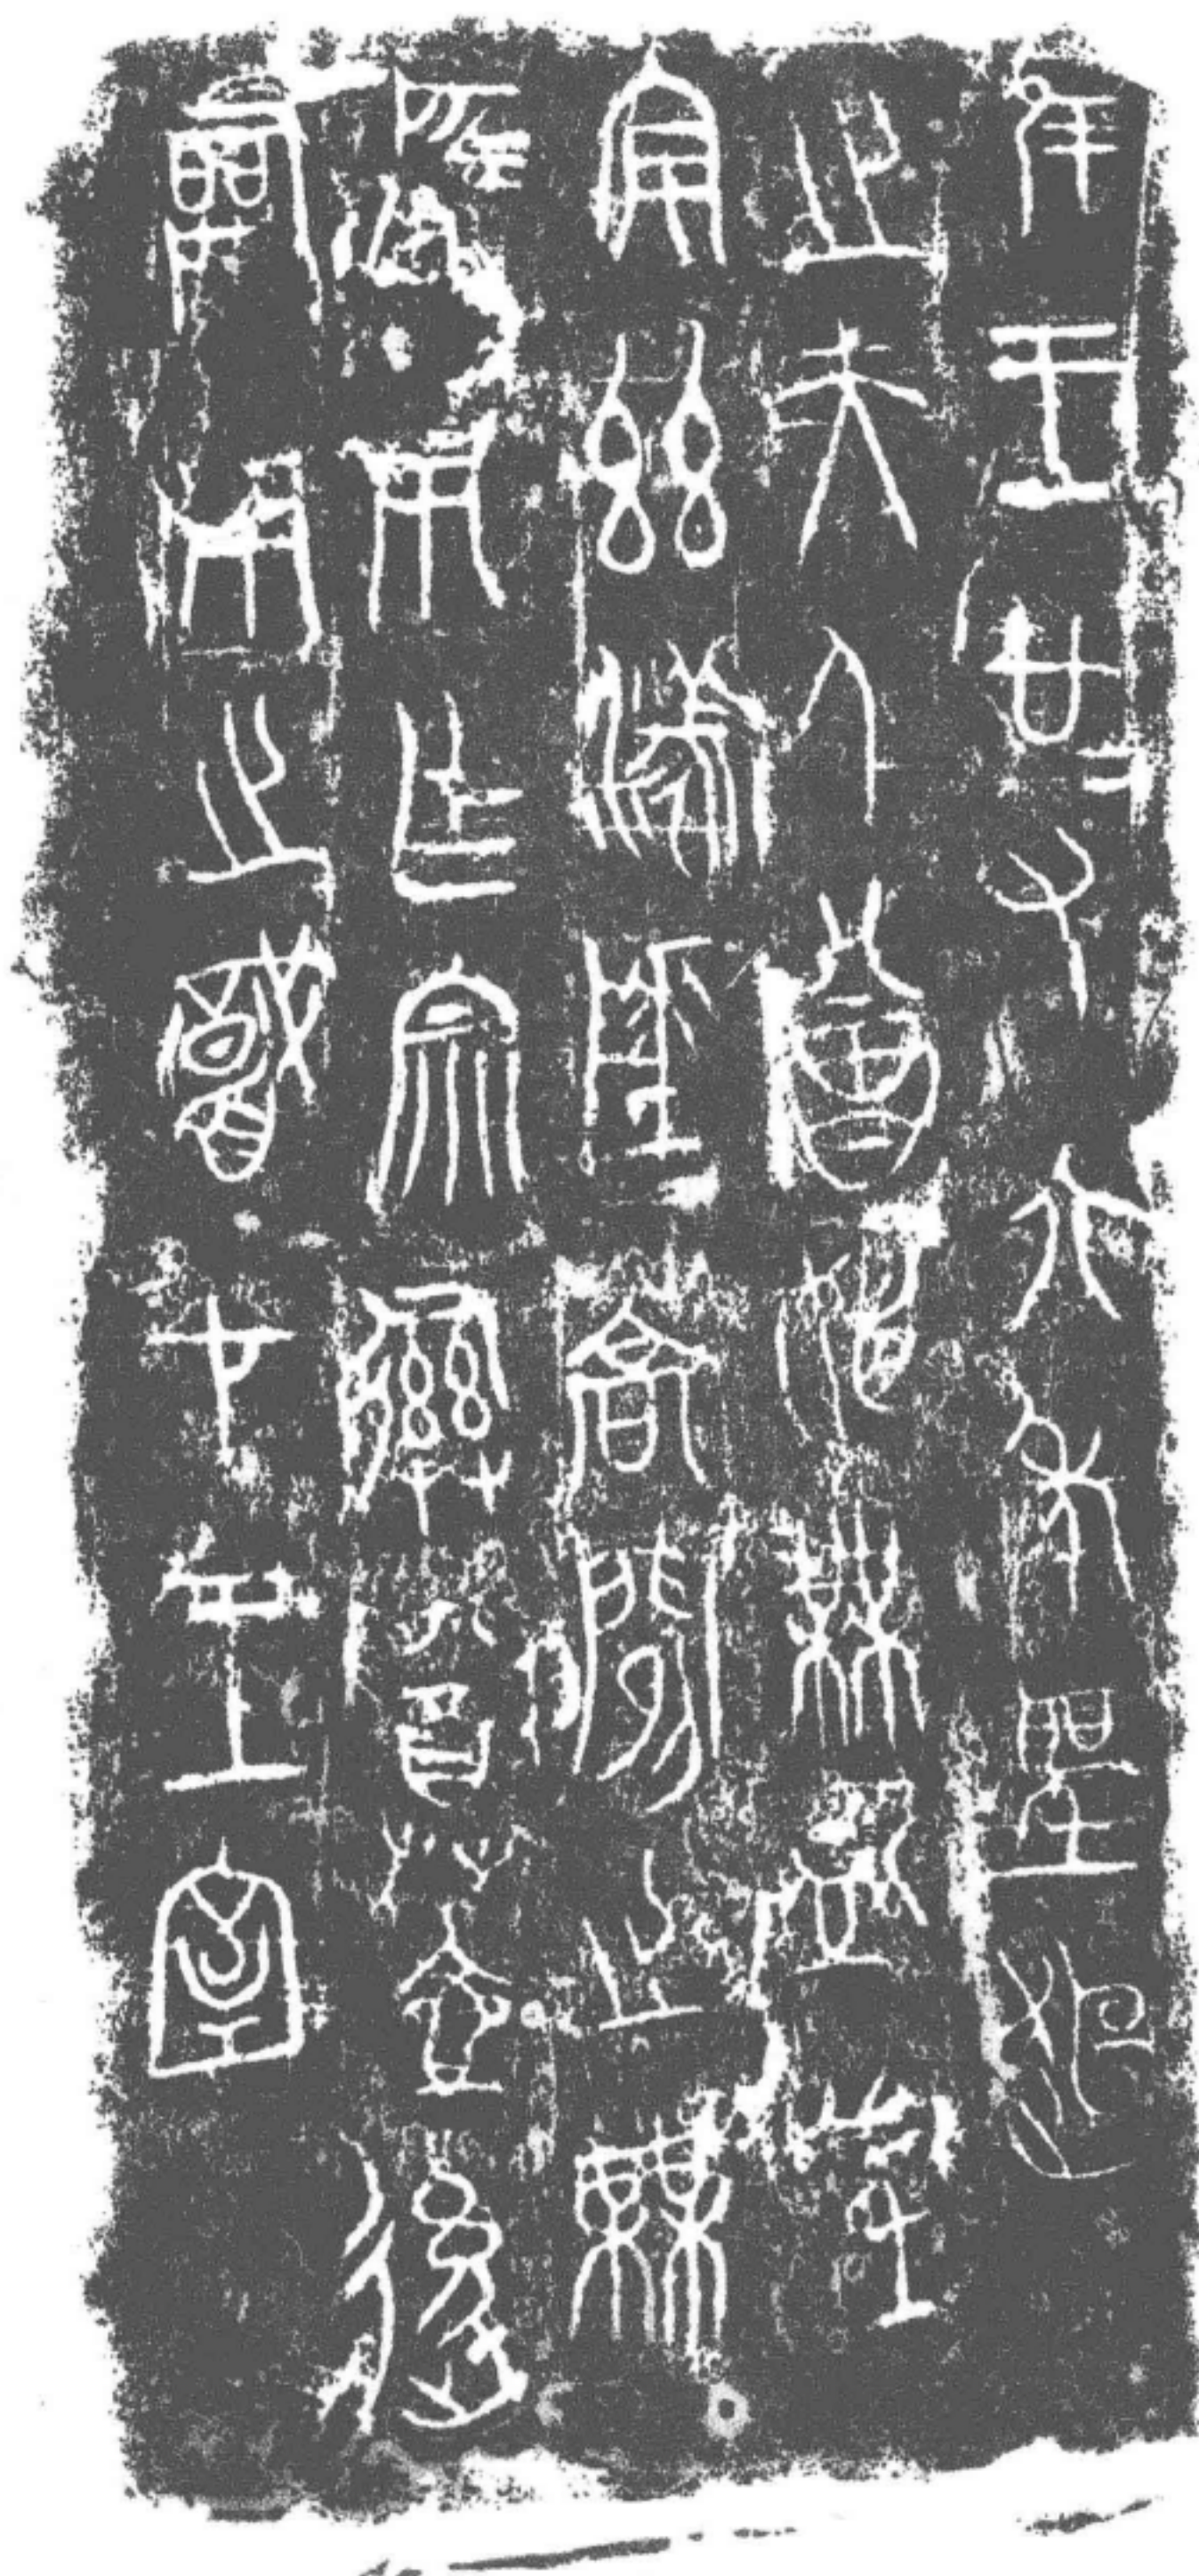 隹王廿又六年聖趄
之夫人曾姬無卹望
安茲漾陵蒿閒之無
匹甬乍宗彝尊壺後
嗣甬之職才王室